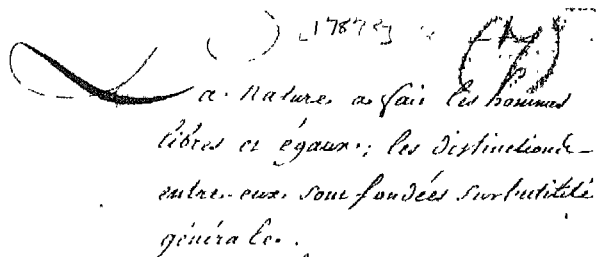 1787
(7)
La Nature a fait les hommes
libres et égaux ; les distinctions
entre eux sont fondées sur l'utilité
générale.